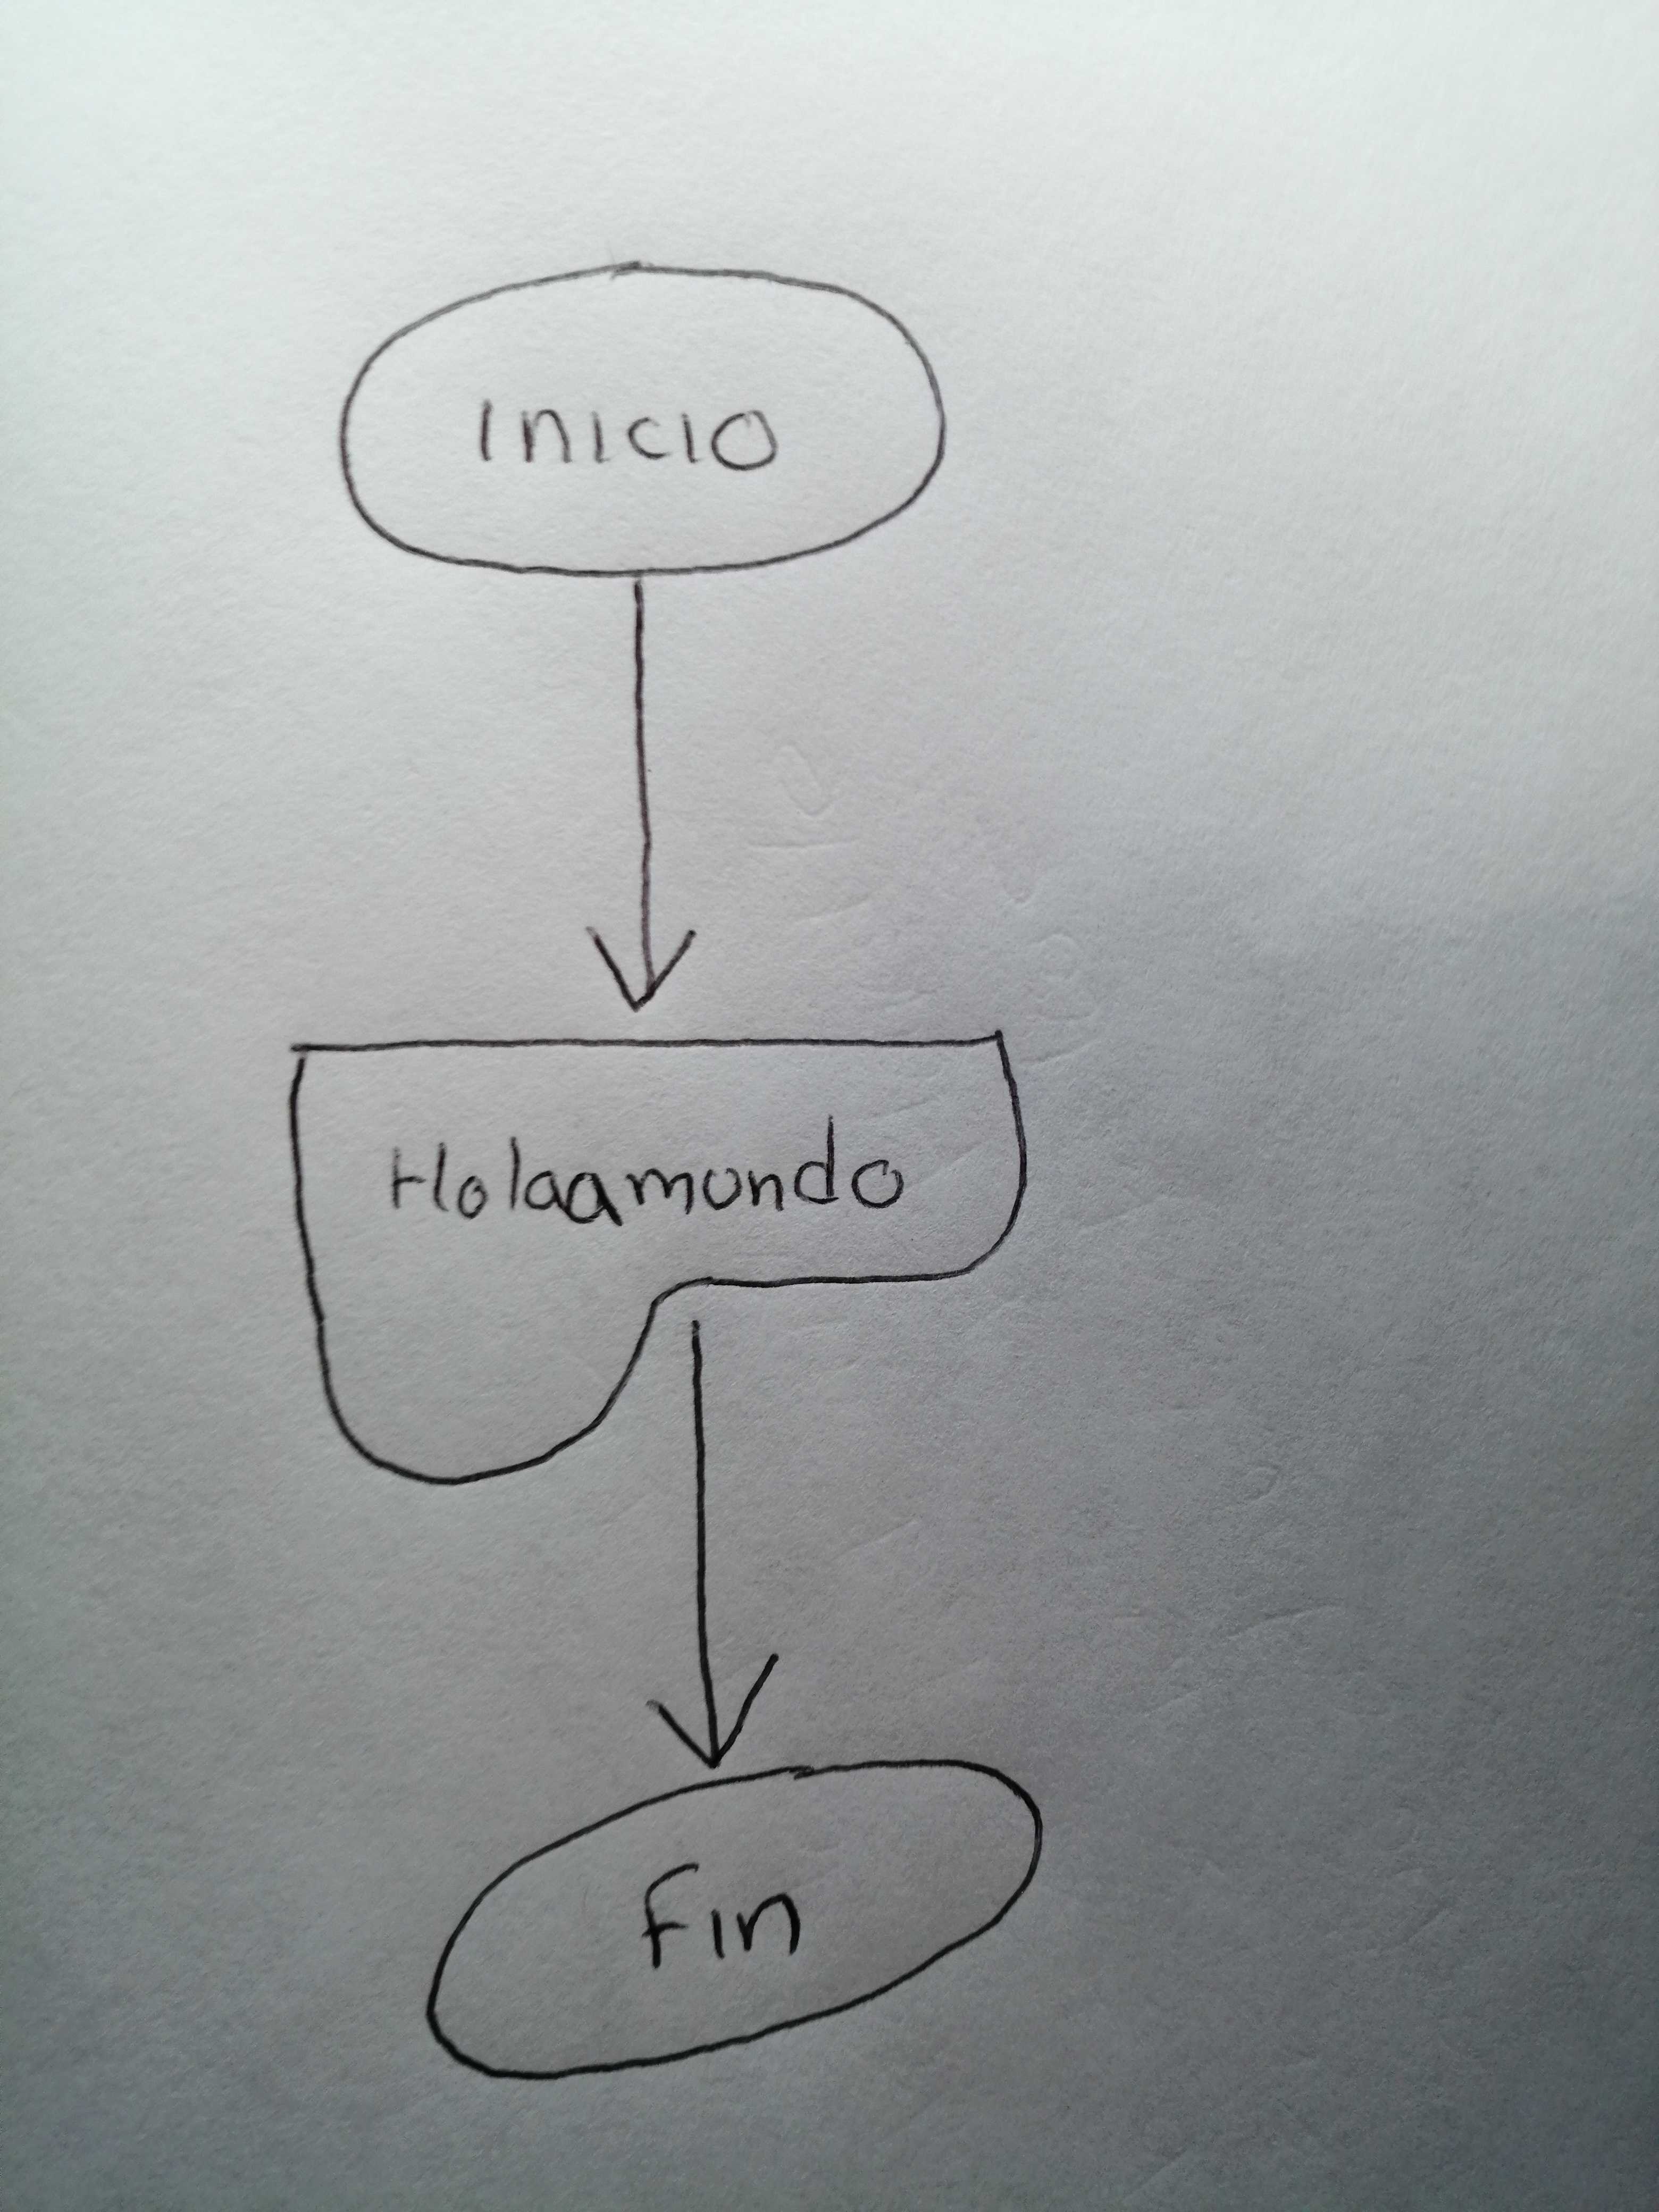 Inicio
Holaamundo
Fin